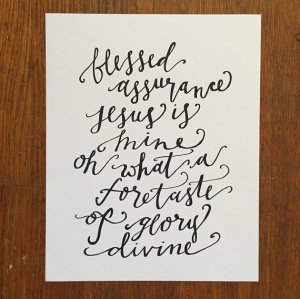 blessed
assurance
jesus is
mine
oh what a
foretaste
of glory
divine